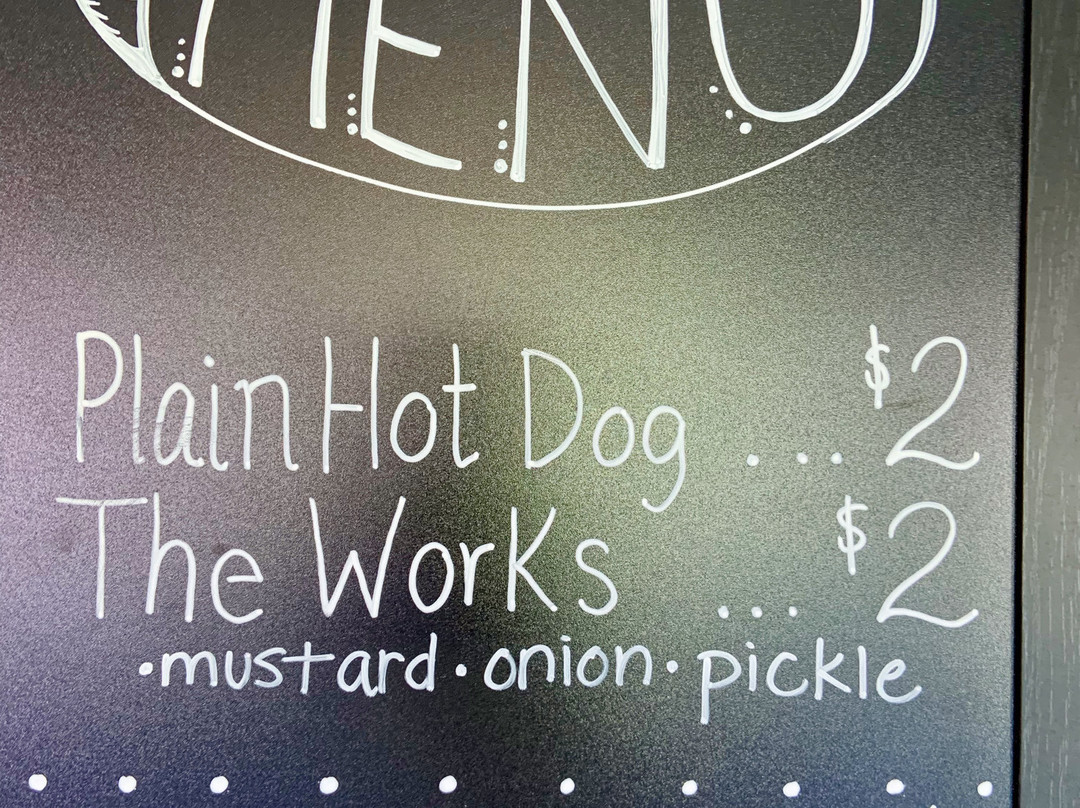 MENU
Plain Hot Dog ... $2
The Works ... $2
• mustard • onion • pickle